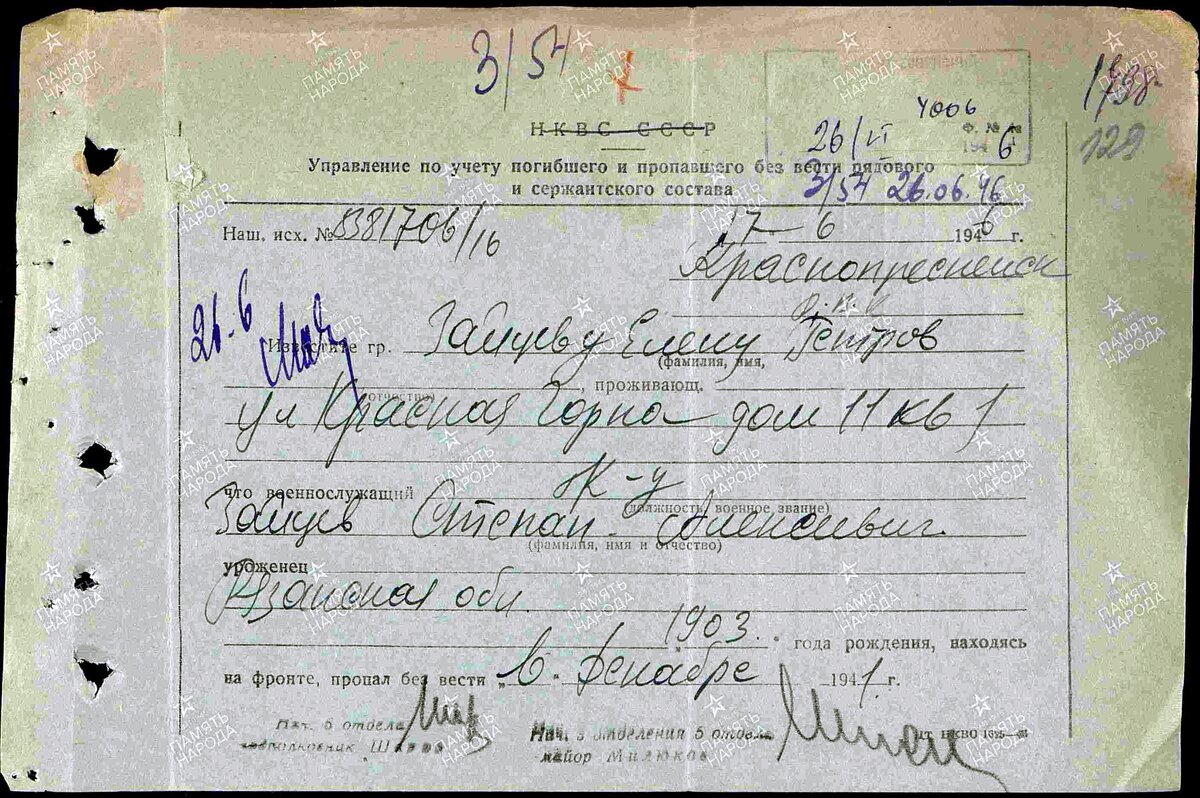 3/54
1738
129
4006
НКВС СССР
26/VI 1946
Управление по учету погибшего и пропавшего без вести рядового
и сержантского состава
3/54 26.06.46
Наш. исх. № 381706/16
17 – 6 1946 г.
Краснопресненск
р.в.к
26.6
Известите гр. Зайцеву Елену Петров
(фамилия, имя,
отчество)
, проживающ.
ул Красная Горка дом 11 кв 1
что военнослужащий к-у
(должность, военное звание)
Зайцев Степан Алексеевич
(фамилия, имя и отчество)
уроженец
Рязанская обл
1903 года рождения, находясь
на фронте, пропал без вести „ в декабре 1941 г.
Нач. 6 отдела
подполковник
Нач. 3 отделения 5 отдела
майор Милюков
ПАМЯТЬ НАРОДА